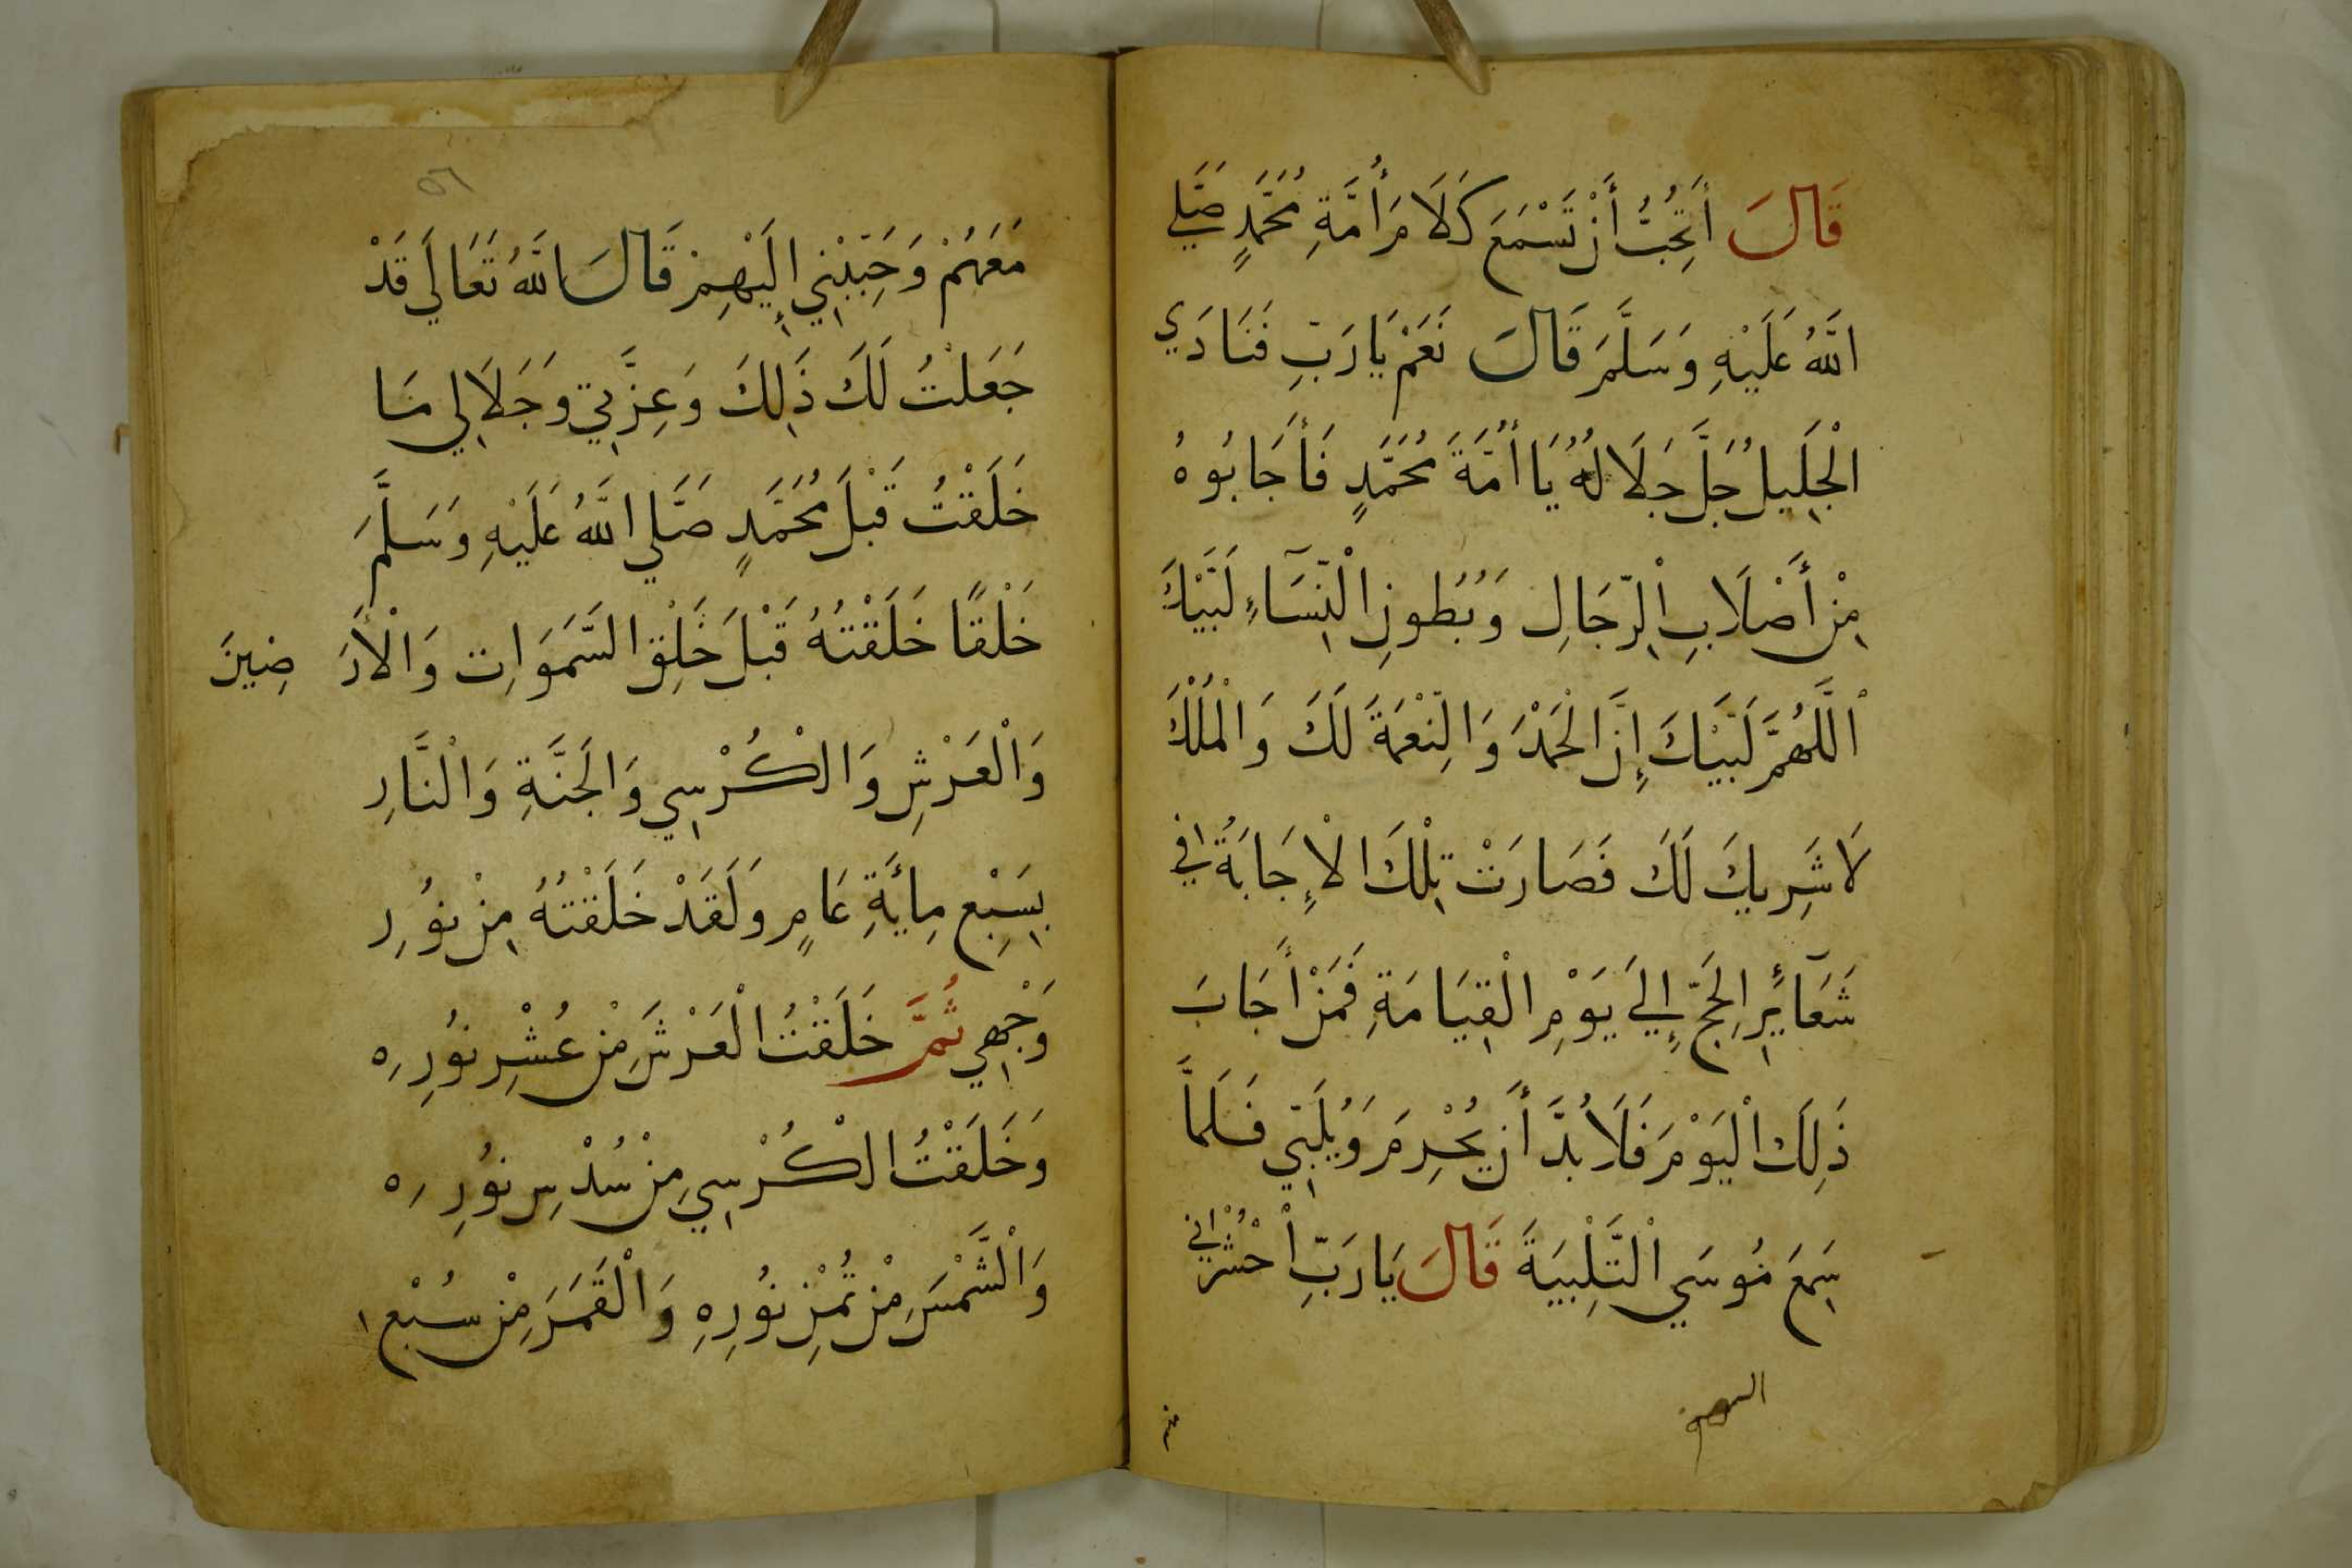 قَالَ أَتُحِبُّ أَنْ تَسْمَعَ كَلَامَ أُمَّةِ مُحَمَّدٍ صَلَّي
اللَّهُ عَلَيْهِ وَسَلَّمَ قَالَ نَعَمْ يَا رَبِّ فَنَادَي
الْجَلِيلُ جَلَّ جَلَالُهُ يَا أُمَّةَ مُحَمَّدٍ فَأَجَابُوهُ
مِنْ أَصْلَابِ الْرِّجَالِ وَبُطُونِ الْنِّسَآءِ لَبَّيْكَ
اللَّهُمَّ لَبَّيْكَ إِنَّ الْحَمْدَ وَالنِّعْمَةَ لَكَ وَالْمُلْكَ
لَا شَرِيكَ لَكَ فَصَارَتْ تِلْكَ الْإِجَابَةُ فِي
شَعَآئِرِ الْحَجِّ إِلَي يَوْمِ الْقِيَامَةِ فَمَنْ أَجَابَ
ذَلِكَ الْيَوْمَ فَلَا بُدَّ أَنْ يُحْرِمَ وَيُلَبِّي فَلَمَّا
سَمِعَ مُوسَي الْتَّلْبِيَةَ قَالَ يَا رَبِّ احْشُرْنِي
مَعَهُمْ وَحَبِّبْنِي إِلَيْهِمْ قَالَ اللَّهُ تَعَالَي قَدْ
جَعَلْتُ لَكَ ذَلِكَ وَعِزَّتِي وَجَلَالِي مَا
خَلَقْتُ قَبْلَ مُحَمَّدٍ صَلَّي اللَّهُ عَلَيْهِ وَسَلَّمَ
خَلْقًا خَلَقْتُهُ قَبْلَ خَلْقِ السَّمَوَاتِ وَالْأَرَضِينَ
وَالْعَرْشِ وَالْكُرْسِي وَالْجَنَّةِ وَالْنَّارِ
بِسَبْعِ مِايَّةِ عَامٍ وَلَقَدْ خَلَقْتُهُ مِنْ نُورِ
وَجْهِي ثُمَّ خَلَقْتُ الْعَرْشَ مِنْ عُشْرِ نُورِهِ
وَخَلَقْتُ الْكُرْسِي مِنْ سُدْسِ نُورِهِ
وَالْشَّمْسَ مِنْ ثُمْنِ نُورِهِ وَالْقَمَرَ مِنْ سُبْعِ